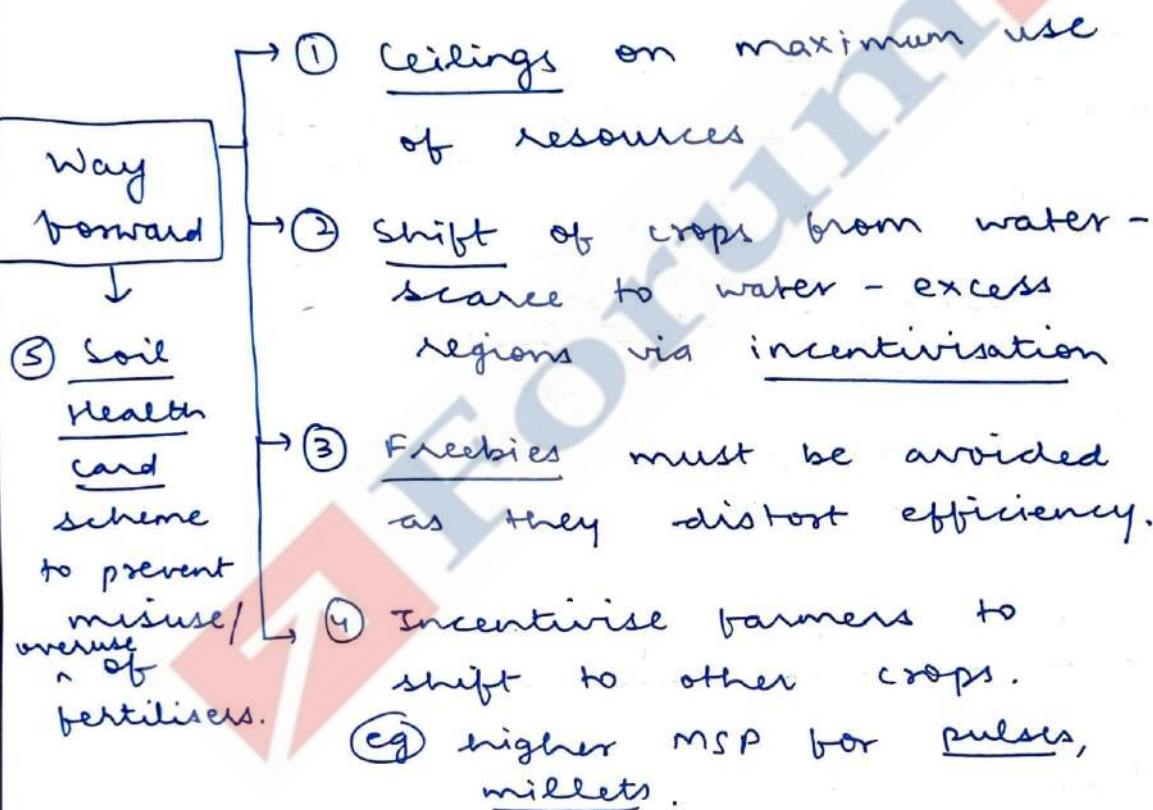 Way
forward
① Ceilings on maximum use
of resources
② Shift of crops from water-
scarce to water-excess
regions via incentivisation
③ Freebies must be avoided
as they distort efficiency.
④ Incentivise farmers to
shift to other crops.
eg higher MSP for pulses,
millets.
⑤ Soil
Health
card
scheme
to prevent
misuse/
overuse
of
fertilisers.
Forum